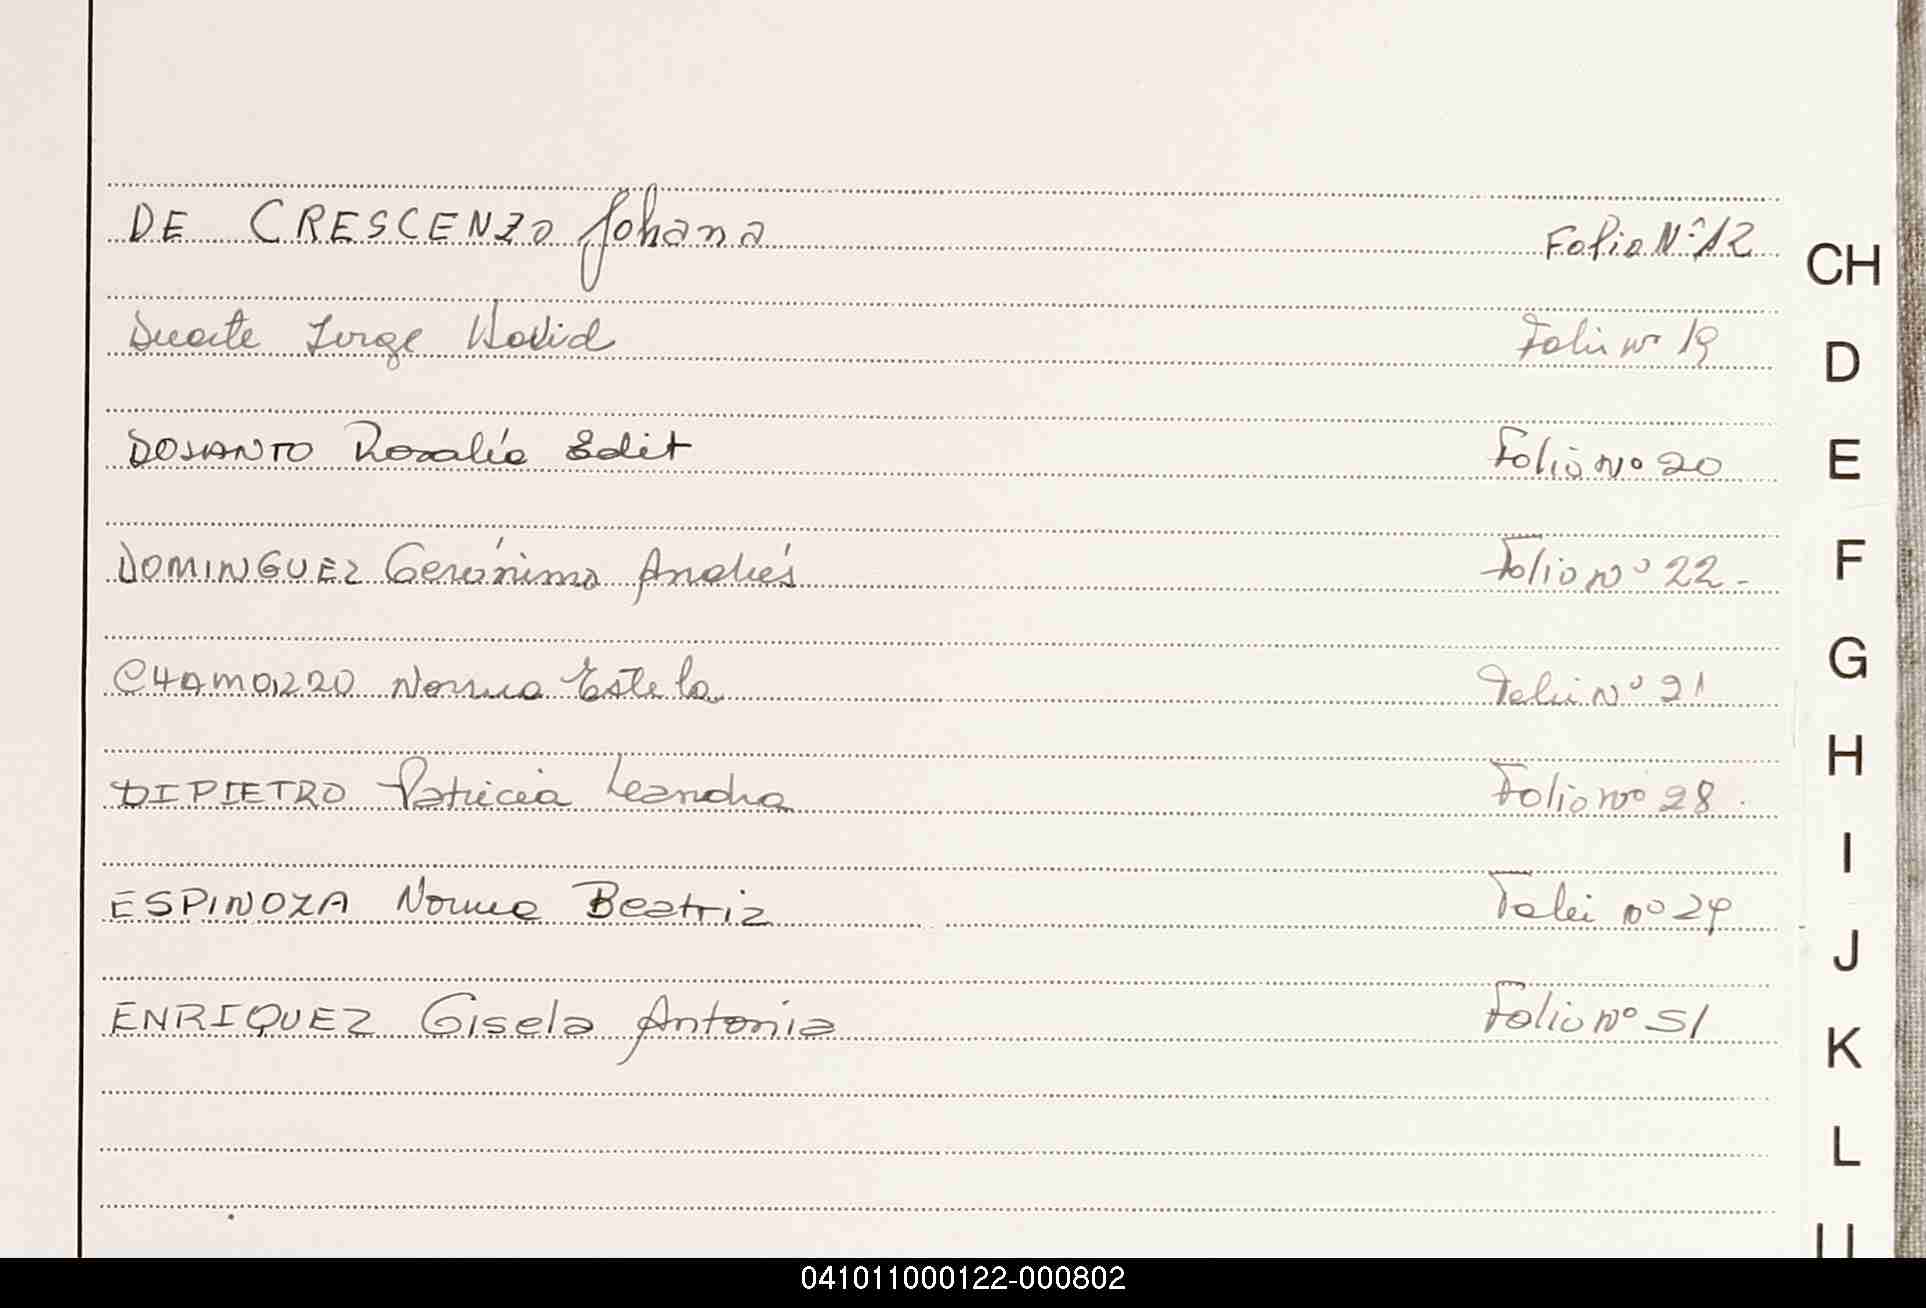 DE CRESCENZO Johana Folio Nº 12
CH
Duarte Jorge David Folio nº 19
D
DOSANTO Rosalía Edit Folio nº 20
E
DOMINGUEZ Gerónimo Andrés Folio nº 22-
F
G
CHAMORRO Norma Estela Folio Nº 21
H
DIPIETRO Patricia Leandra Folio nº 28.
I
ESPINOZA Norma Beatriz Folio nº 29
J
ENRIQUEZ Gisela Antonia Folio nº 51
K
L
041011000122-000802